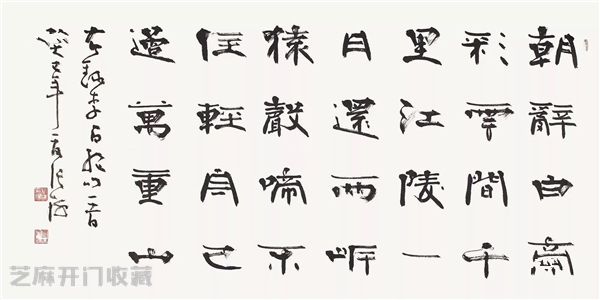 朝辭白帝
彩雲間千
里江陵一
日還兩岸
猿聲啼不
住輕舟已
過萬重山
右録李白詩一首
癸巳年
芝麻开门收藏